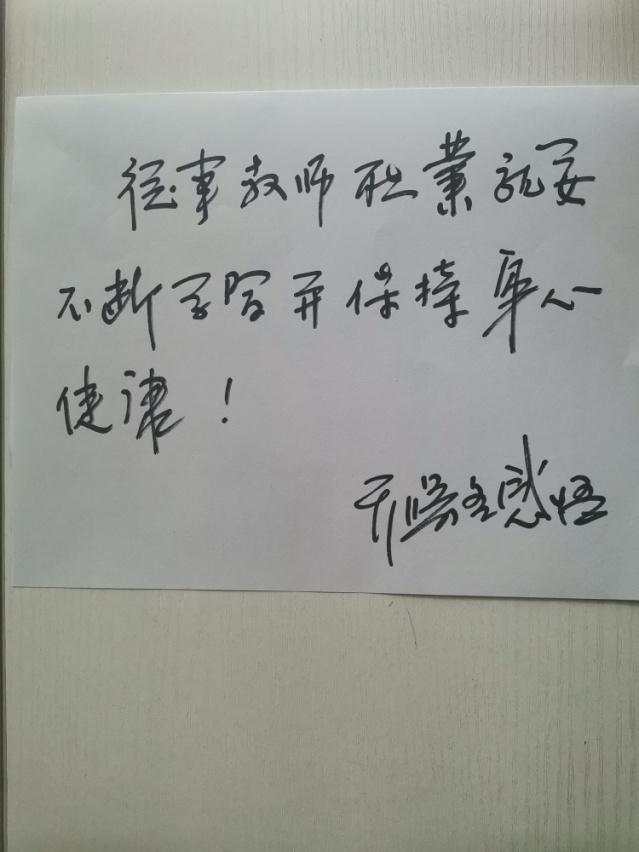 从事教师职业就要
不断学习并保持身心
健康！
感悟